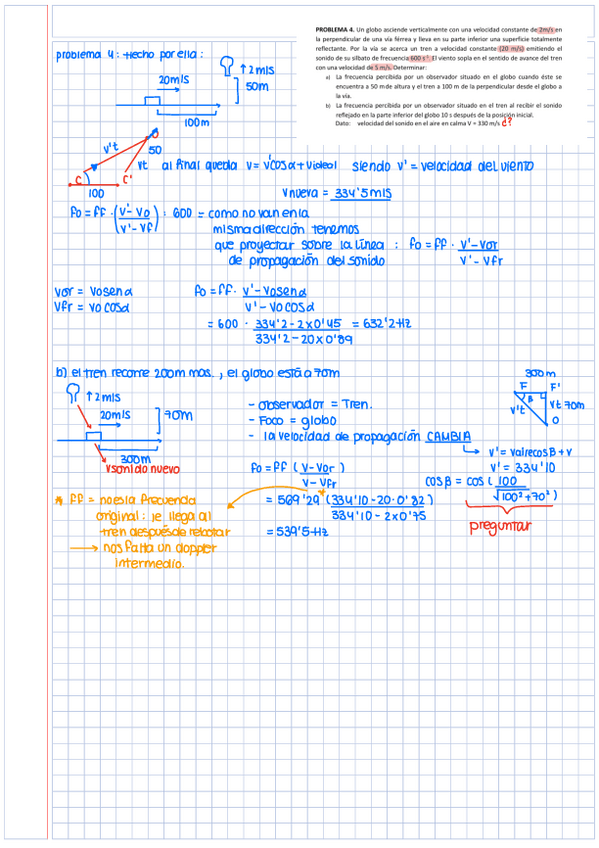 PROBLEMA 4. Un globo asciende verticalmente con una velocidad constante de 2m/s en
la perpendicular de una vía férrea y lleva en su parte inferior una superficie totalmente
reflectante. Por la vía se acerca un tren a velocidad constante (20 m/s) emitiendo el
sonido de su silbato de frecuencia 600 s⁻¹. El viento sopla en el sentido de avance del tren
con una velocidad de 5 m/s. Determinar:
a) La frecuencia percibida por un observador situado en el globo cuando éste se
encuentra a 50 m de altura y el tren a 100 m de la perpendicular desde el globo a
la vía.
b) La frecuencia percibida por un observador situado en el tren al recibir el sonido
reflejado en la parte inferior del globo 10 s después de la posición inicial.
Dato: velocidad del sonido en el aire en calma V = 330 m/s ¿?
problema 4: Hecho por ella:
↑2m/s
20m/s
50m
100m
v't
O
50
vt
C
C'
100
al final queda v = v'cosα + videal siendo v' = velocidad del viento
Vnueva = 334'5m/s
fo = ff · (v'- vo / v'- vf) : 600 = como no van en la
misma dirección tenemos
que proyectar sobre la línea : fo = ff · v'-vor / v'- vfr
de propagación del sonido
vor = vosenα
vfr = vocosα
fo = ff · v'-vosenα / v'-vocosα
= 600 · 334'2-2x0'45 / 334'2-20x0'89 = 632'2Hz
b) el tren recorre 200m mas., el globo está a 70m
↑2m/s
20m/s
70m
300m
vsonido nuevo
- observador = Tren.
- Foco = globo
- la velocidad de propagación CAMBIA
v' = vairecosβ + v
v' = 334'10
300m
F
F'
β
v't
vt 70m
O
fo = ff (v-vor / v-vfr)
cosβ = cos (100 / √100²+70²)
preguntar
= 569'29 (334'10-20·0'82 / 334'10-2x0'75)
= 539'5Hz
* ff = no es la frecuencia
original: le llega al
tren después de rebotar
→ nos falta un doppler
intermedio.